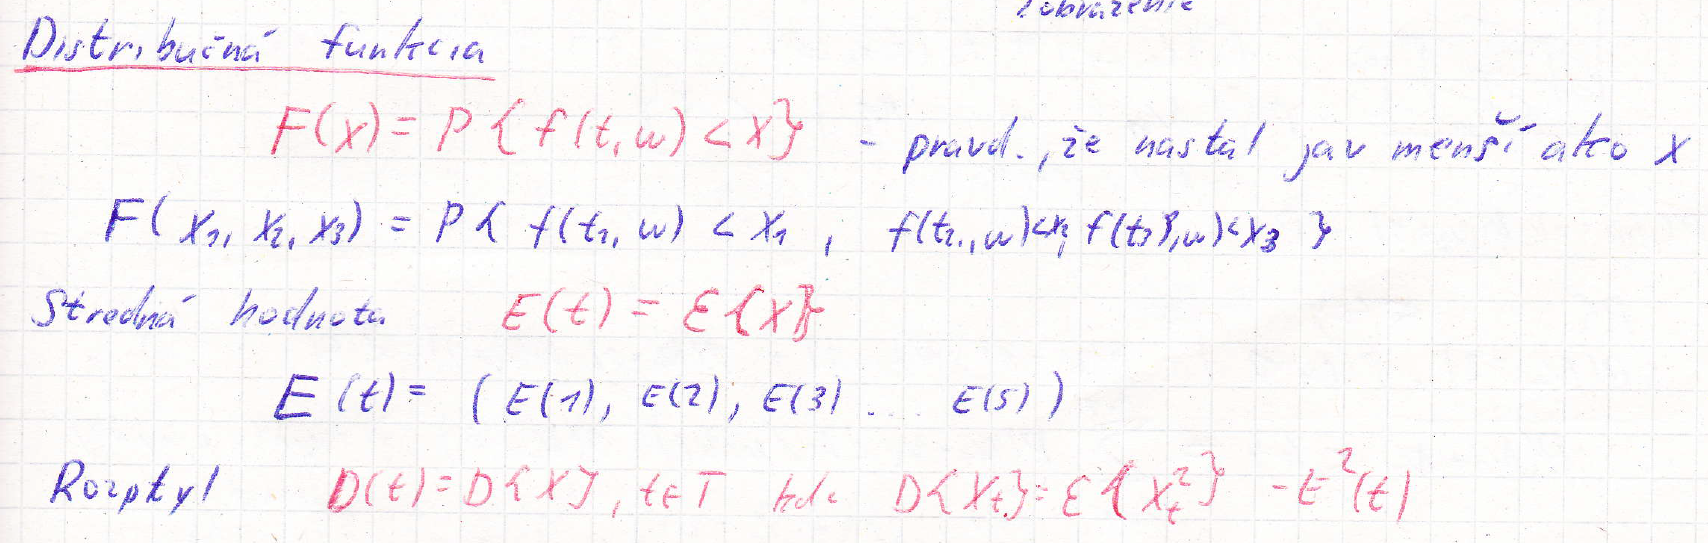 zobrazenie
Distribučná funkcia
F(x) = P{f(t,w) < x} - pravd., že nastal jav menší ako x
F(x₁, x₂, x₃) = P{ f(t₁, w) < x₁ , f(t₂, w)<x₂, f(t₃, w)<x₃ }
Stredná hodnota E(t) = E{X}
E(t) = ( E(1), E(2), E(3) .... E(5) )
Rozptyl D(t) = D{X}, t∈T kde D{Xₜ} = E{Xₜ²} - E²(t)